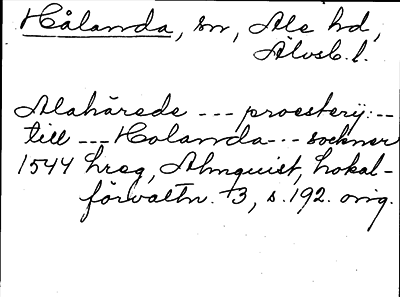 Hålanda, sn, Ale hd,
Älvsb. l.
Alahärede --- proesterij: --
till --- Holanda --- sockner
1544 hreg, Almquist, Lokal-
förvaltn. +3, s. 192. orig.